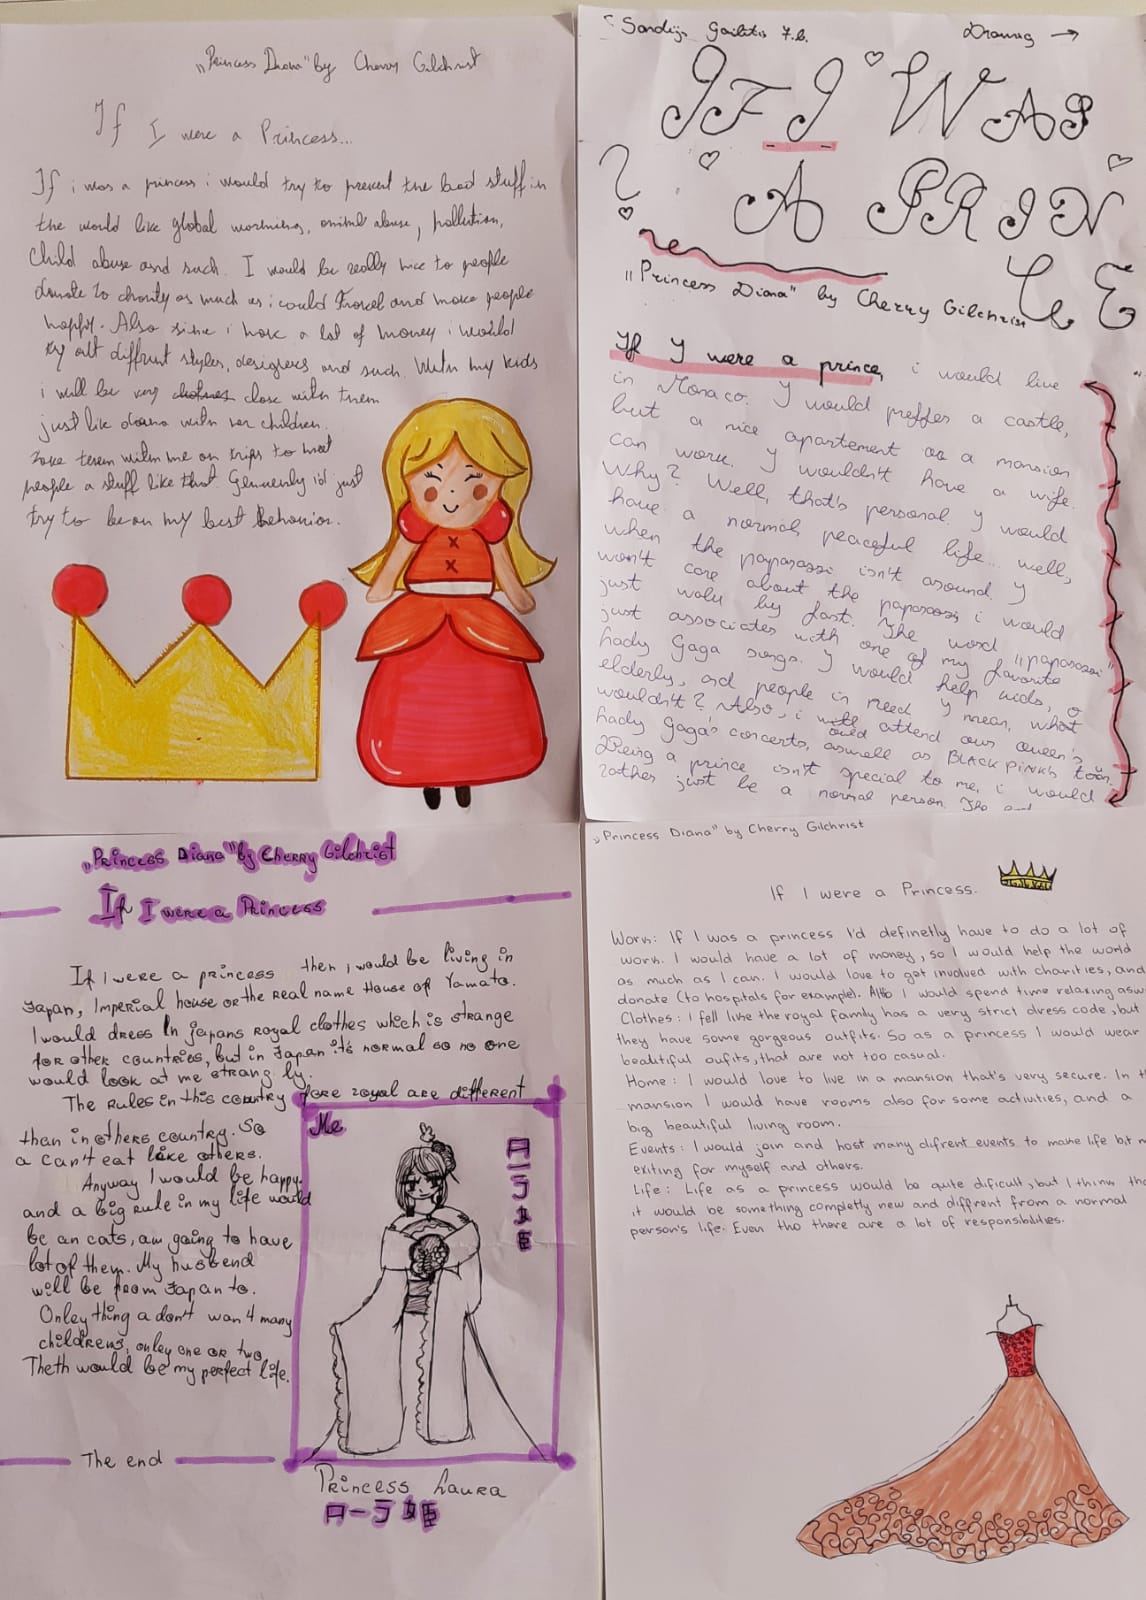 „Princess Diana" by Cherry Gilchrist
If I were a Princess...
If i was a princess i would try to prevent the bad stuff in
the would like global worming, animal abuse, pollution,
Child abuse and such. I would be really nice to people
donate to charity as much as i could and make people
happy. Also since i have a lot of money i would
try out diffrent styles, designers and such. With my kids
i will be very close with them
just like diana with her children.
Take them with me on trips to meet
people a stuff like that Genuenly i'd just
try to be on my best behavior.
Sandijs Gailitis 7.b.
Drawing →
IF I WAS
A PRIN
CE
„Princess Diana" by Cherry Gilchrist
If I were a prince, i would live
in Monaco. I would preffer a castle,
but a nice apartement or a mansion
can work. I wouldn't have a wife.
Why? Well, that's personal. I would
have a normal peaceful life... well,
when the paparazzi isn't around. I
won't care about the paparazzi i would
just walk by fast. The word „paparazzi"
just associates with one of my favorite
Lady Gaga songs. I would help kids,
elderly, and people in need I mean, what
wouldn't? Also, i would attend our queen's
Lady Gaga's concerts, aswell as BLACKPINK's
Being a prince isn't special to me, i would
rather just be a normal person. The end
„Princess Diana" by Cherry Gilchrist
If I were a Princess
If I were a princess then i would be living in
Japan, Imperial house or the real name House of Yamato.
I would dress In japans royal clothes which is strange
for other countries, but in Japan it's normal so no one
would look at me strang ly.
The Rules in this country fore royal are different
than in others country. So
a can't eat like others.
Anyway I would be happy
and a big rule in my life would
be an cats, am going to have
lot of them. My husbend
will be from Japan to.
Onley thing a don't wan't many
childrens, onley one or two
Theth would be my perfect life.
Me
ローラ姫
The end
Princess Laura
ローラ姫
„Princess Diana" by Cherry Gilchrist
If I were a Princess.
Work: If I was a princess I'd definetly have to do a lot of
work. I would have a lot of money, so I would help the world
as much as I can. I would love to get involved with charities, and
donate (to hospitals for example). Also I would spend time relaxing asw
Clothes: I fell like the royal family has a very strict dress code, but
they have some gorgeous outfits. So as a princess I would wear
beautiful oufits, that are not too casual.
Home: I would love to live in a mansion that's very secure. In th
mansion I would have rooms also for some activities, and a
big beautiful living room.
Events: I would join and host many difrent events to make life bit m
exiting for myself and others.
Life: Life as a princess would be quite dificult, but I think tha
it would be something completly new and diffrent from a normal
person's life. Even tho there are a lot of responsibilities.